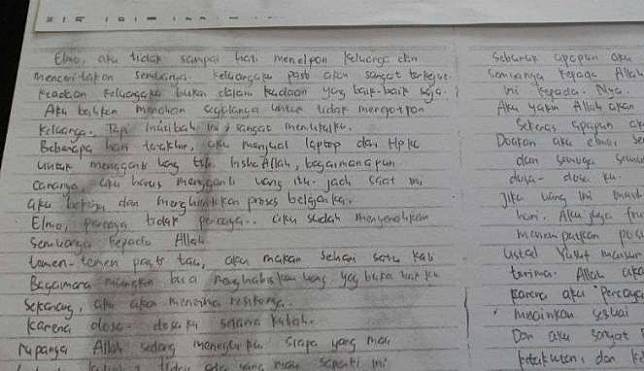 Elmo, aku tidak sampai hati menelpon keluarga dan
menceritakan semuanya. keluargaku pasti akan sangat terkejut.
keadaan keluargaku bukan dalam keadaan yang baik-baik saja.
Aku bahkan menahan segalanya untuk tidak merepotkan
keluarga. Tapi musibah ini sangat memukulku.
Beberapa hari terakhir, aku menjual laptop dan Hpku
untuk mengganti uang itu. Insha Allah, bagaimanapun
caranya, aku harus mengganti uang itu. jadi saat ini
aku bekerja dan menghentikan proses belajarku.
Elmo, percaya tidak percaya.. aku sudah menyerahkan
semuanya kepada Allah.
temen-temen pasti tau, aku makan sehari satu kali
Bagaimana mungkin bisa menghabiskan uang yang bukan hakku
Sekarang, aku akan menerima resikonya.
karena dosa-dosaku selama kuliah.
rupanya Allah sedang menegurku. Siapa yang mau
yang mau seperti ini
Seberat apapun aku
semuanya kepada Allah
ini kepada-Nya.
Aku yakin Allah akan
Sekeras apapun aku
Doakan aku elmo,
dan semoga
dosa-dosa ku.
Jika uang ini
hari. Aku juga
Ustad Yusuf mansur
terima. Allah
karena aku percaya
sesuai
Dan aku sangat
ketakutan, dan